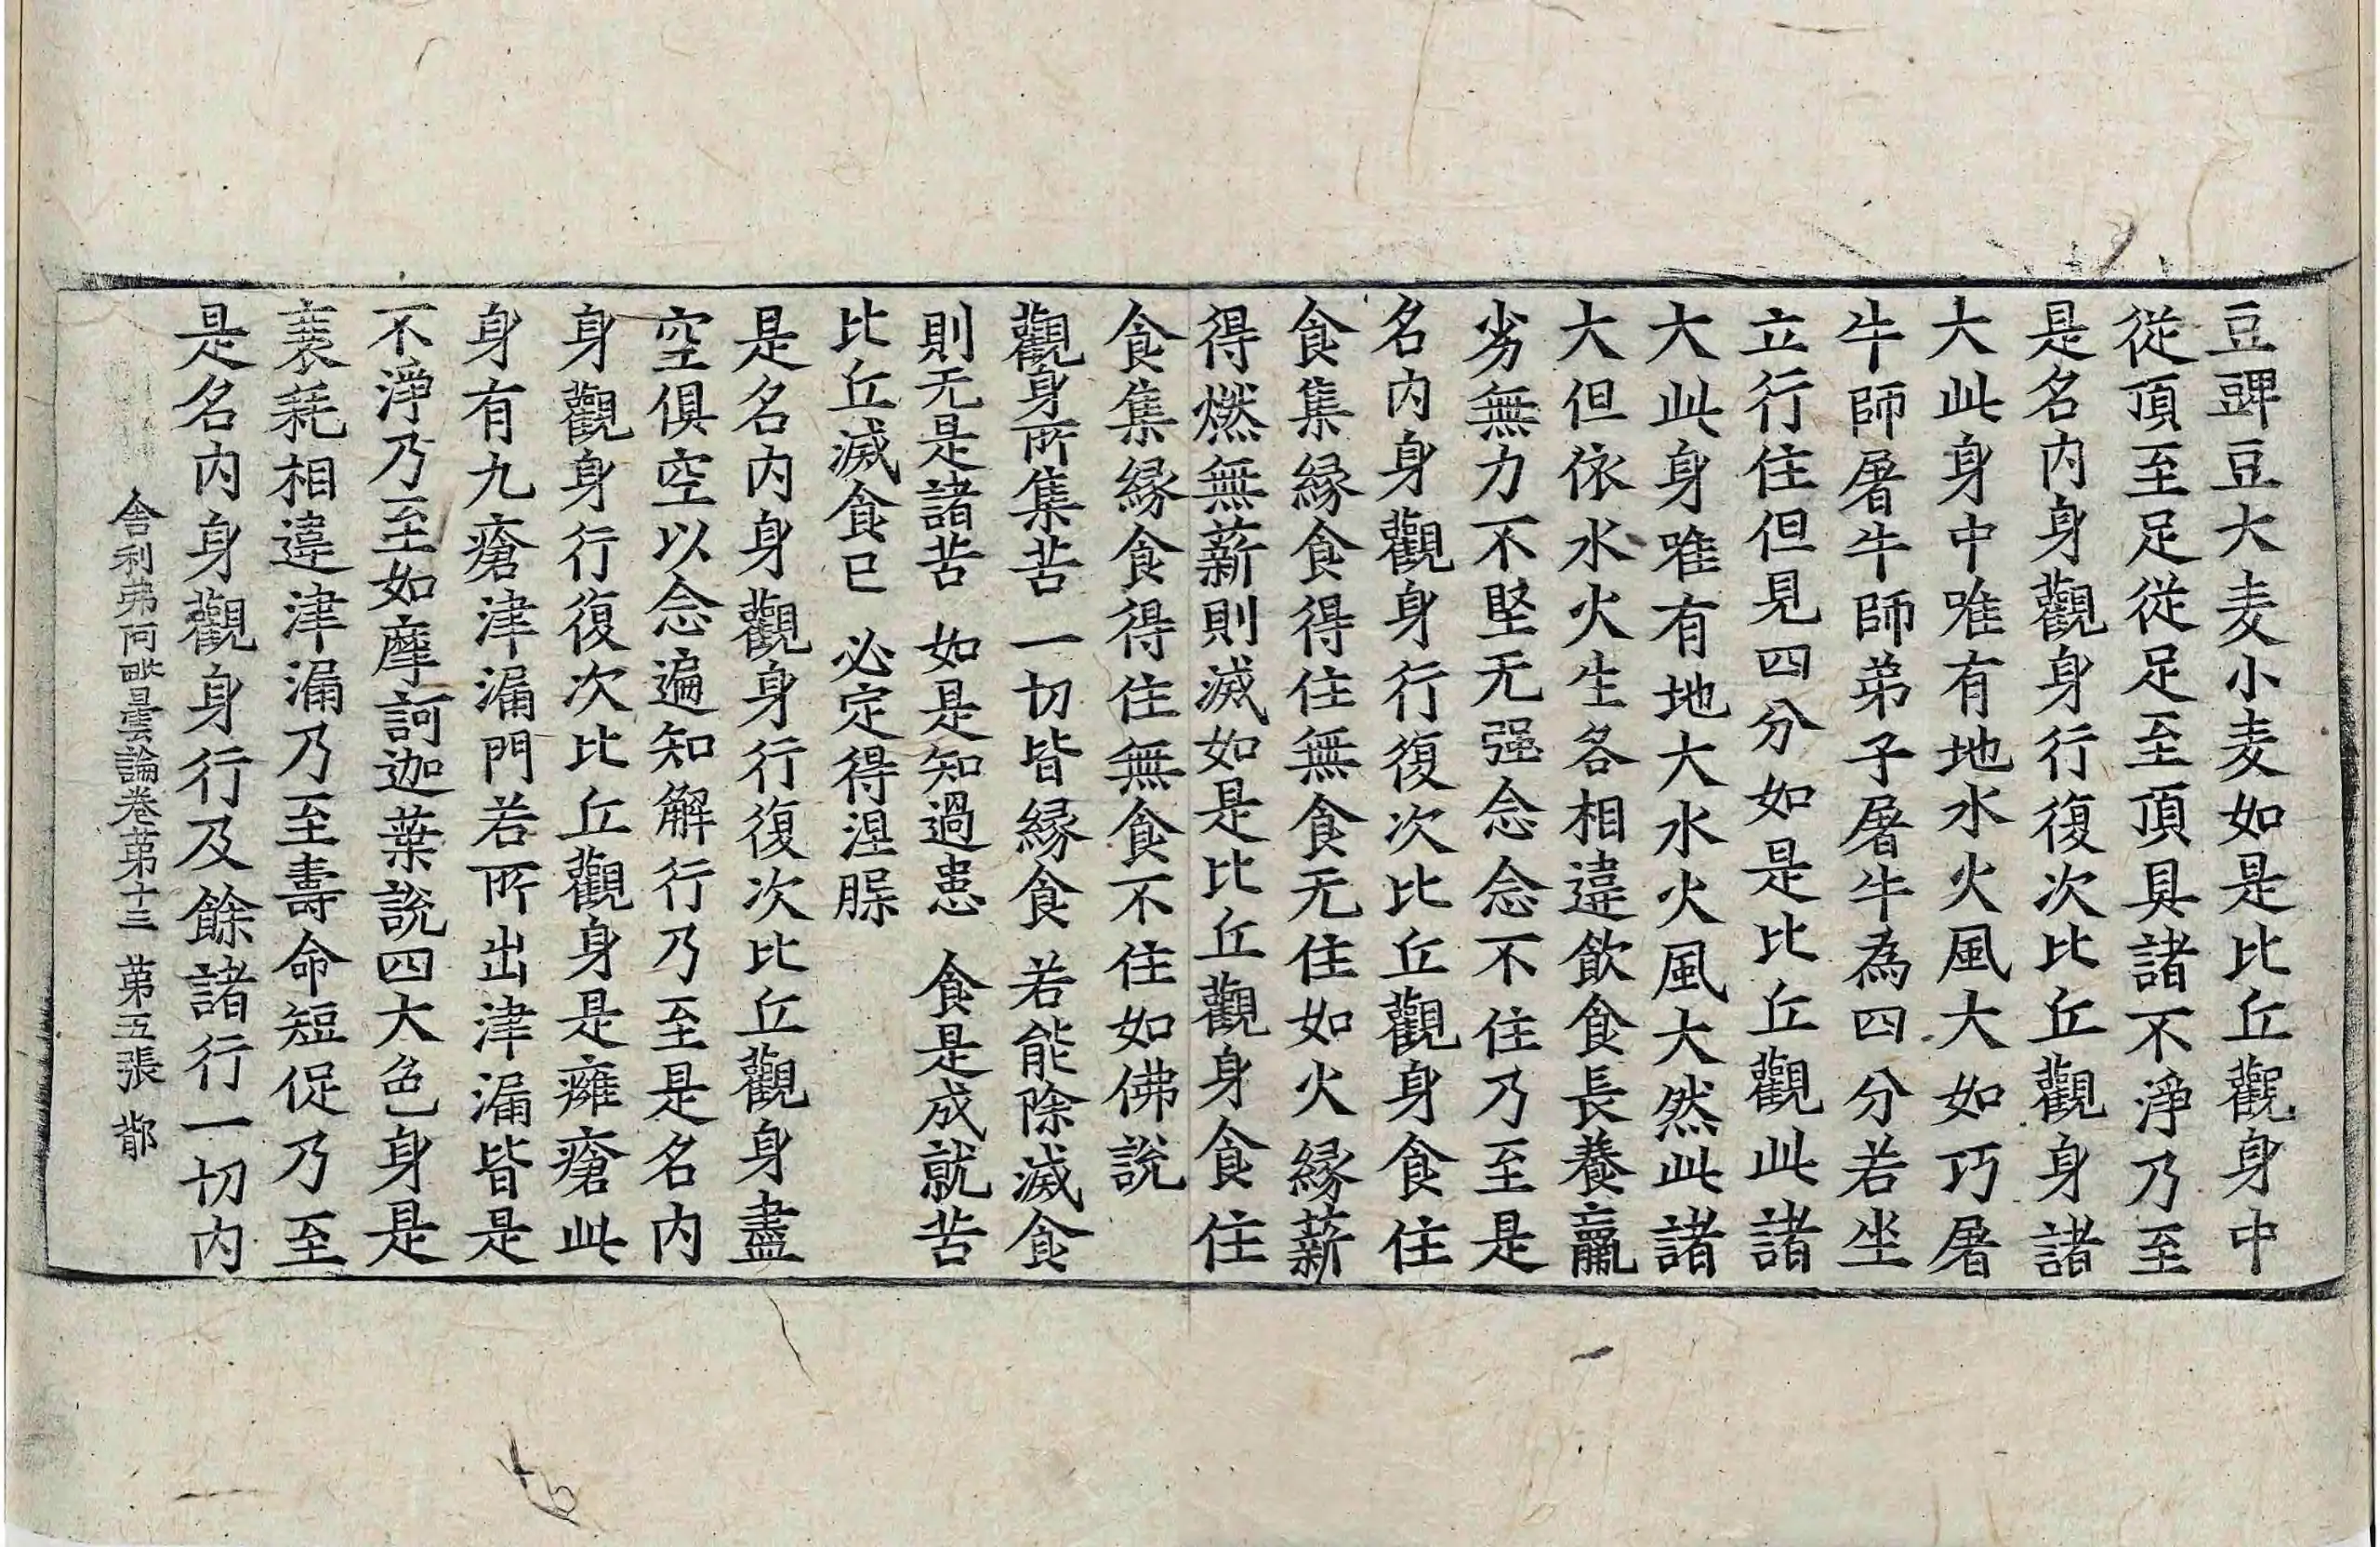 豆豍豆大麦小麦如是比丘觀身中
從頂至足從足至頂具諸不淨乃至
是名内身觀身行復次比丘觀身諸
大此身中唯有地水火風大如巧屠
牛師屠牛師弟子屠牛為四分若坐
立行住但見四分如是比丘觀此諸
大此身唯有地大水火風大然此諸
大但依水火生各相違飲食長養羸
劣無力不堅无强念念不住乃至是
名内身觀身行復次比丘觀身食住
食集縁食得住無食无住如火縁薪
得燃無薪則滅如是比丘觀身食住
食集縁食得住無食不住如佛說
觀身所集苦 一切皆縁食 若能除滅食
則无是諸苦 如是知過患 食是成就苦
比丘滅食已 必定得涅槃
是名内身觀身行復次比丘觀身盡
空俱空以念遍知解行乃至是名内
身觀身行復次比丘觀身是癰瘡此
身有九瘡津漏門若所出津漏皆是
不淨乃至如摩訶迦葉説四大色身是
衰耗相違津漏乃至壽命短促乃至
是名内身觀身行及餘諸行一切内
舎利弗阿毗曇論卷苐十三 苐五張